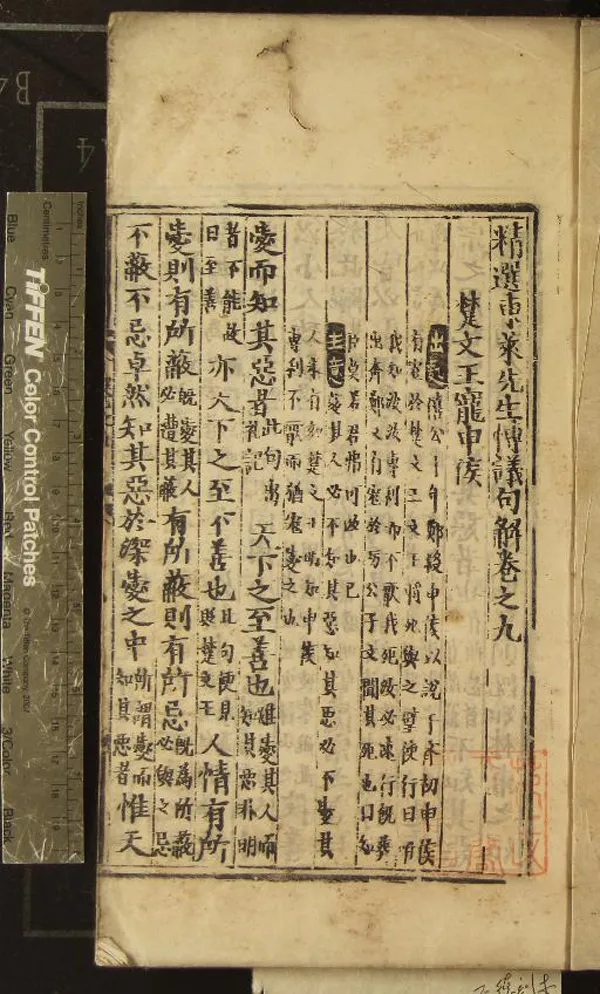 精選東萊先生博議句解卷之九
楚文王寵申侯
出處 僖公七年鄭殺申侯以說于齊初申侯
有寵於楚文王文王將死與之璧使行曰唯
我知汝汝專利而不厭我死汝必速行既葬
出奔鄭又有寵於厲公子文聞其死也曰知
臣莫若君弗可改也已
主意 愛其人必不知其惡知其惡必不愛其
人未有如楚文王明知申侯
專利不厭而猶寵愛之也
愛而知其惡者 此句出禮記 天下之至善也 雖愛其人而知其惡非明
者不能故曰至善 亦天下之至不善也 此句便見與楚文王 人情有所
愛則有所蔽 既愛其人必遭其蔽 有所蔽則有所忌 既為所蔽必與之忌
不蔽不忌卓然知其惡於深愛之中 所謂愛而知其惡者 惟天
TIFFEN Color Control Patches
© The Tiffen Company, 2007
Centimetres
Inches
Blue
Cyan
Green
Yellow
Red
Magenta
White
3/Color
Black
B4
A4